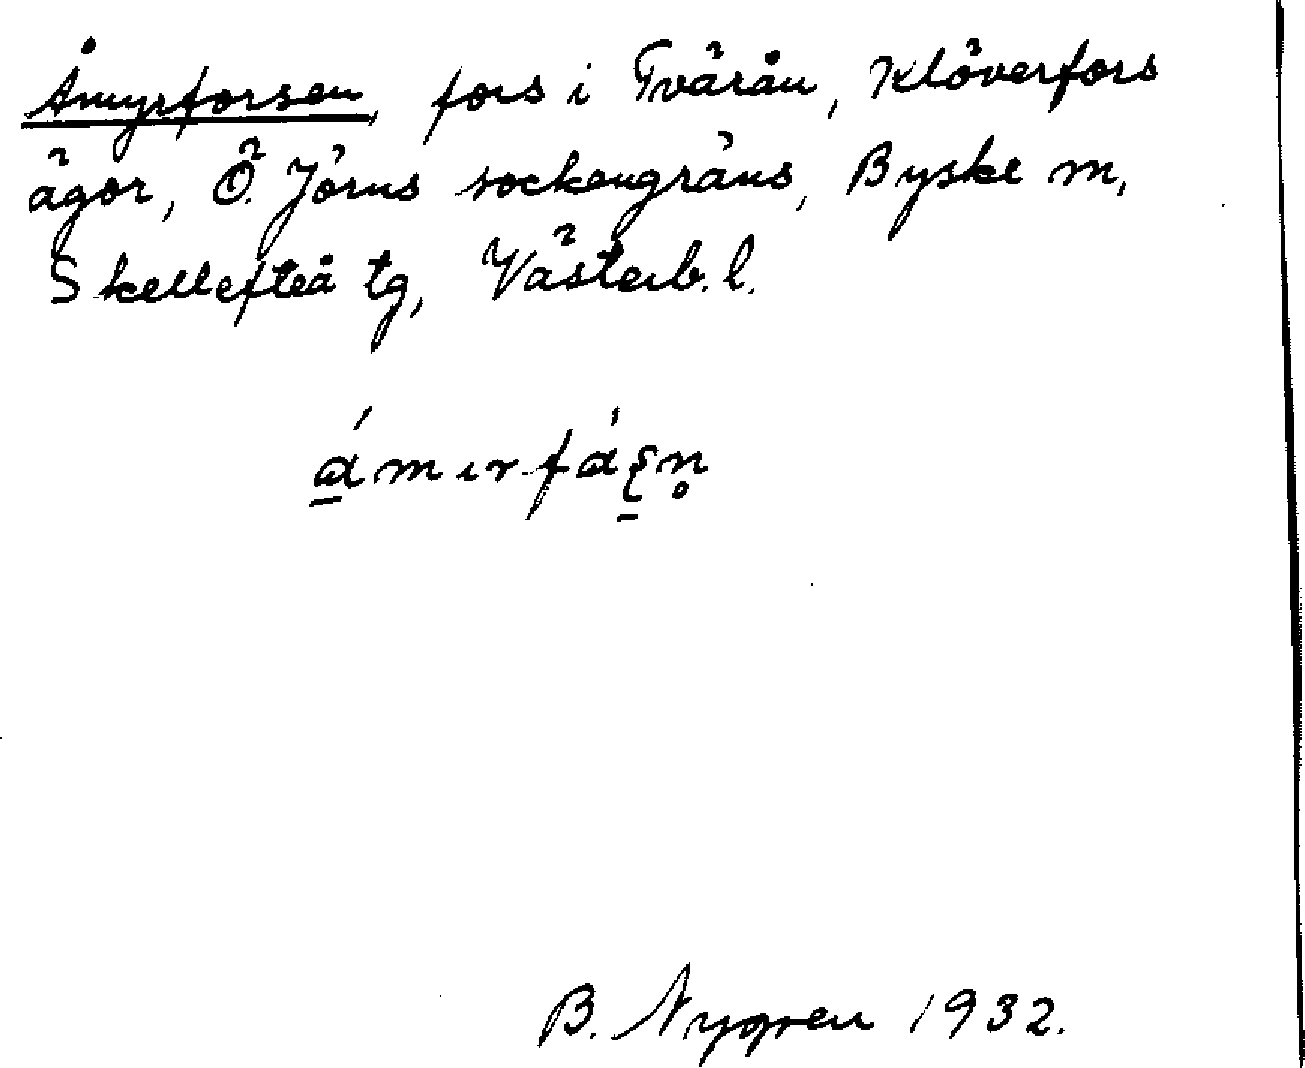 Åmyrforsen, fors i Tvärån, Klöverfors
ägor, Ö. Jörns sockengräns, Byske m,
Skellefteå tg, Västerb. l.
B. Nygren 1932.